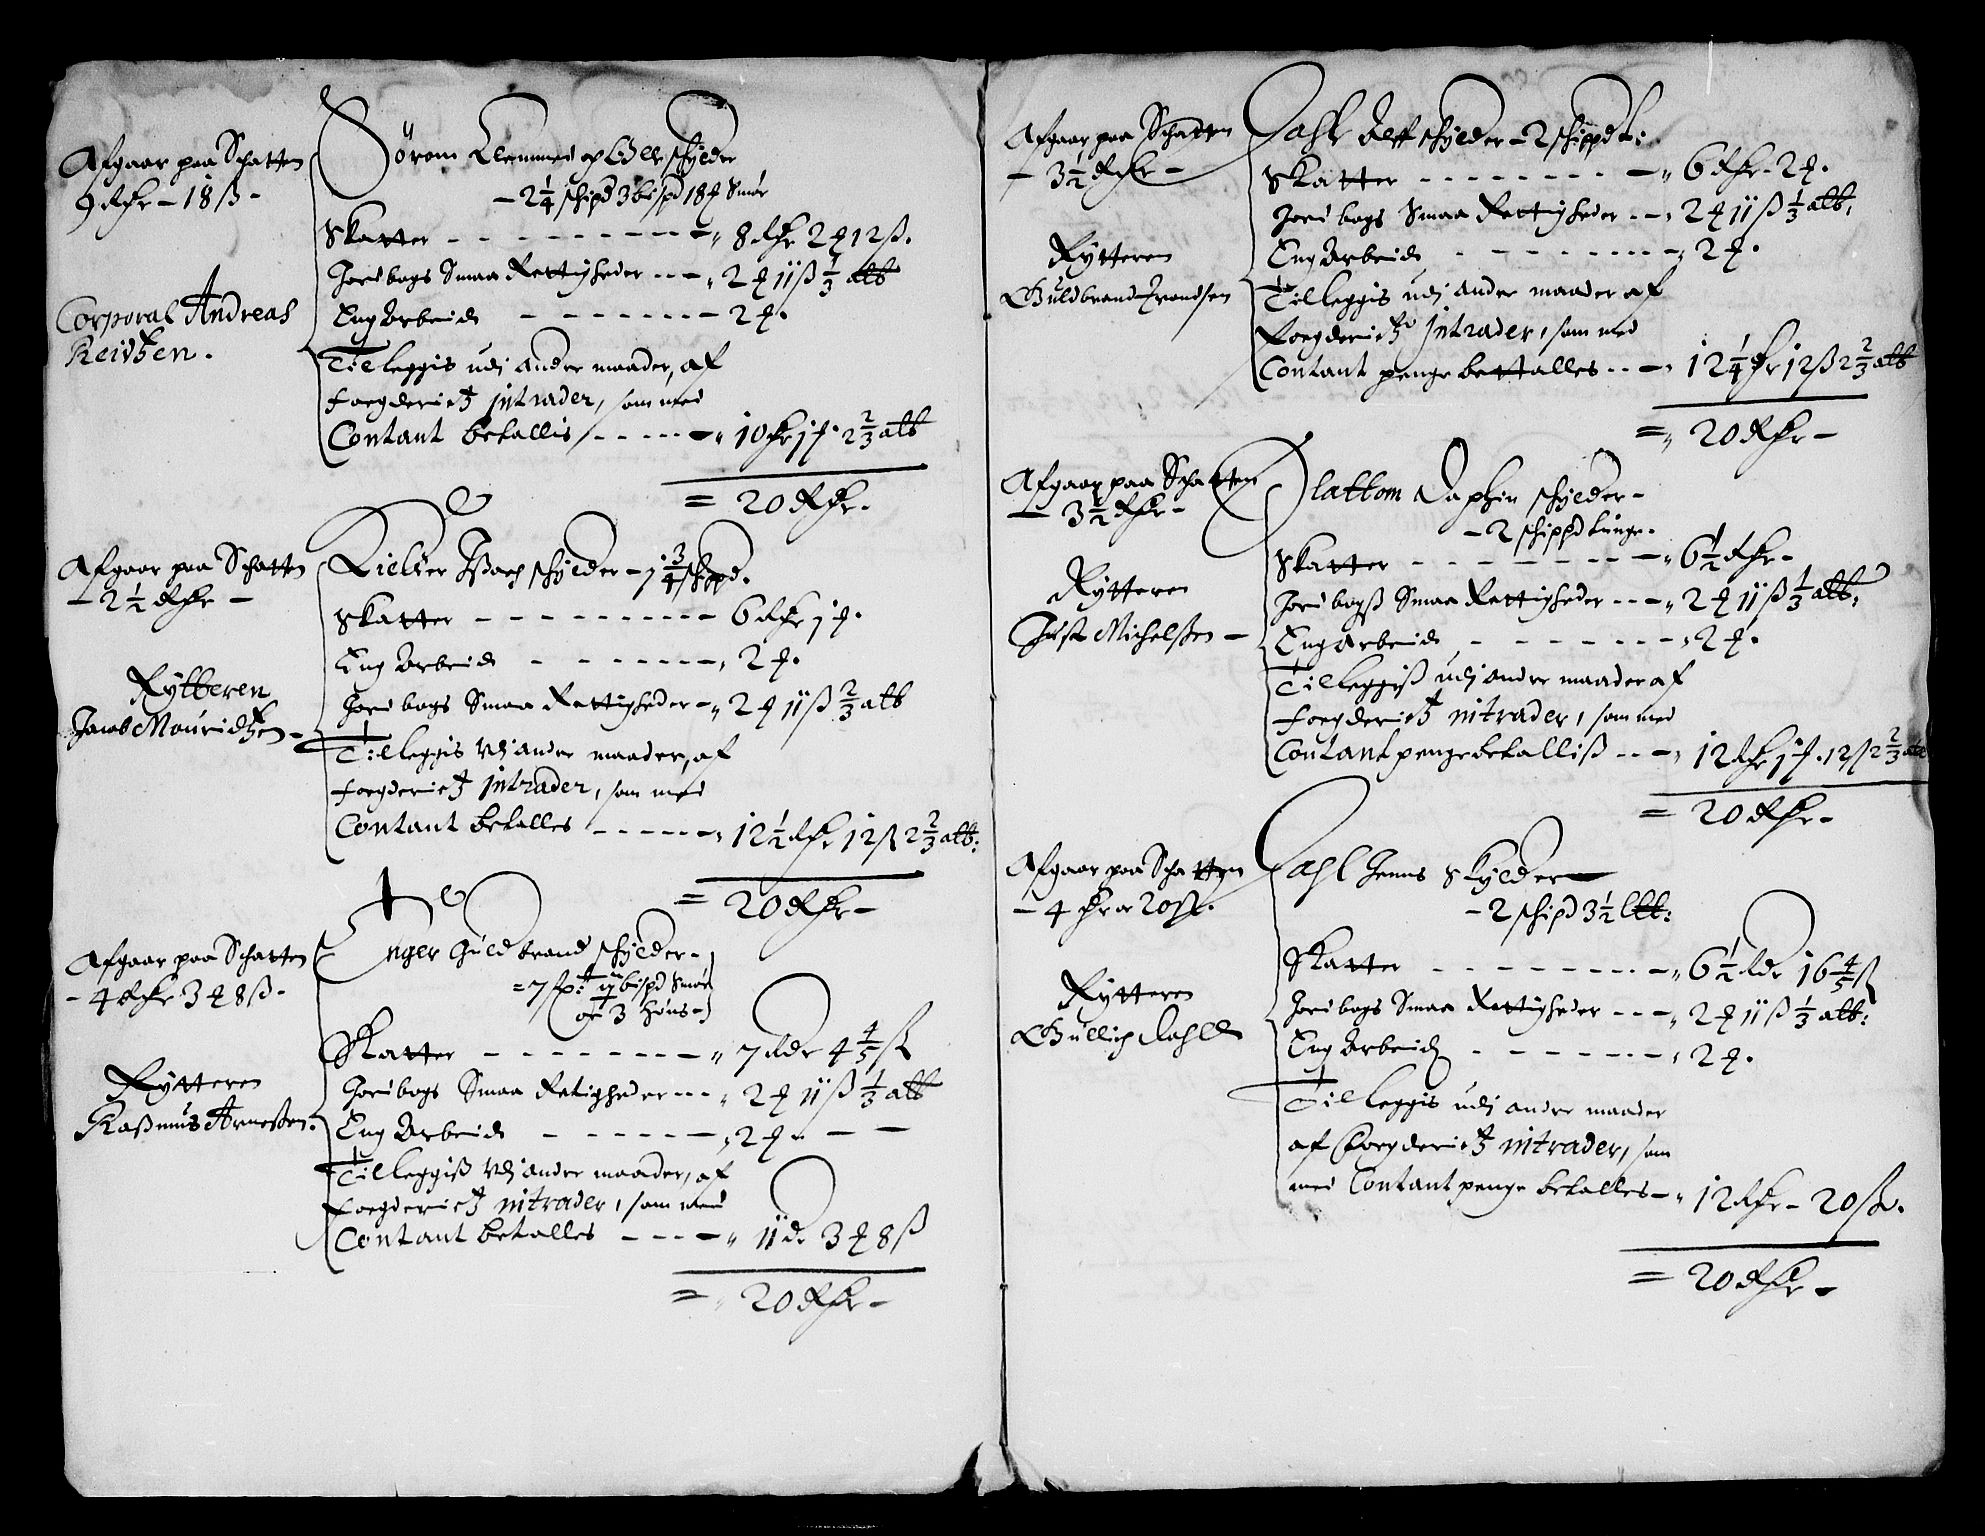 Afgaar paa Schatten
9 Rdr – 18 ß –
Corporal Andreas
Sörom Clemmed och Oller schylder
– 2 1/4 schipd 3 bispd 18 Smör
Skatter – 8 Rdr 2 12 ß.
Jordbogs Smaa Rettigheder – 2 11 ß 1/3 alb
Eng Arbeid – 2
Tilleggis udj andre maader, af
Foegderietz jntrader, som med
Contant betallis – 10 dr 1 2 2/3 alb
= 20 Rdr.
Afgaar paa Schatten
– 2 1/2 Rdr –
Rytteren
Jacob Mouridtzen –
schylder – 1 3/4 schipd.
Skatter – 6 Rdr 1
Eng Arbeid – 2
Jordbogs Smaa Rettigheder – 2 11 ß 2/3 alb
Tilleggis Vdj andre maader, af
Foegderietz jntrader, som med
Contant betalles – 12 1/2 Rdr 12 ß 2 2/3 alb:
= 20 Rdr –
Afgaar paa Schatten
– 4 Rdr 3 8 ß –
Rytteren
Rasmus Arnesen.
Enger Guldbrand schylder –
bispd Smör
och 3 Höns –
Skatter – 7 Rdr 4 4/5 ß
Jordbogs Smaa Retigheder – 2 11 ß 1/3 alb
Eng Arbeid – 2 – –
Tilleggiß Vdj andre maader, af
Foegderietz intrader, som med
Contant betalles – 11 dr 3 8 ß
= 20 Rdr –
Afgaar paa Schatten
– 3 1/2 Rdr –
Rytteren
Guldbrand Trondsen
Dahl schylder – 2 schippdt:
Skatter – 6 Rdr 2
Jordbogs Smaa Rettigheder – 2 11 ß 1/3 alb,
Eng Arbeid – 2
Tilleggis udj andre maader af
Foegderietz jntrader, som med
Contant penge bettalles – 12 1/4 dr 12 ß 2 2/3 alb
= 20 Rdr –
Afgaar paa Schatten
– 3 1/2 Rdr –
Rytteren
Just Michelßen –
schylder –
– 2 schippd tunge.
Skatter – 6 1/2 Rdr –
Jordbogß Smaa Rettigheder – 2 11 ß 1/3 alb,
Eng Arbeid – 2
Tilleggiß udj andre maader af
Foegderietz intrader, som med
Contant penge betalliß – 12 Rdr 1 12 ß 2 2/3 alb
= 20 Rdr –
Afgaar paa Schatten
– 4 dr 20 ß.
Rytteren
Gullich Dahll
Dahl Jenns Skylder
– 2 schipd 3 1/2
Skatter – 6 1/2 Rdr 16 4/5 ß
Jordbogs Smaa Rettigheder – 2 11 ß 1/3 alb:
Eng Arbeid – 2
Tilleggis udj andre maader
af Foegderietz intrader, som
med Contant penge betalles – 12 Rdr – 20 ß.
= 20 Rdr –